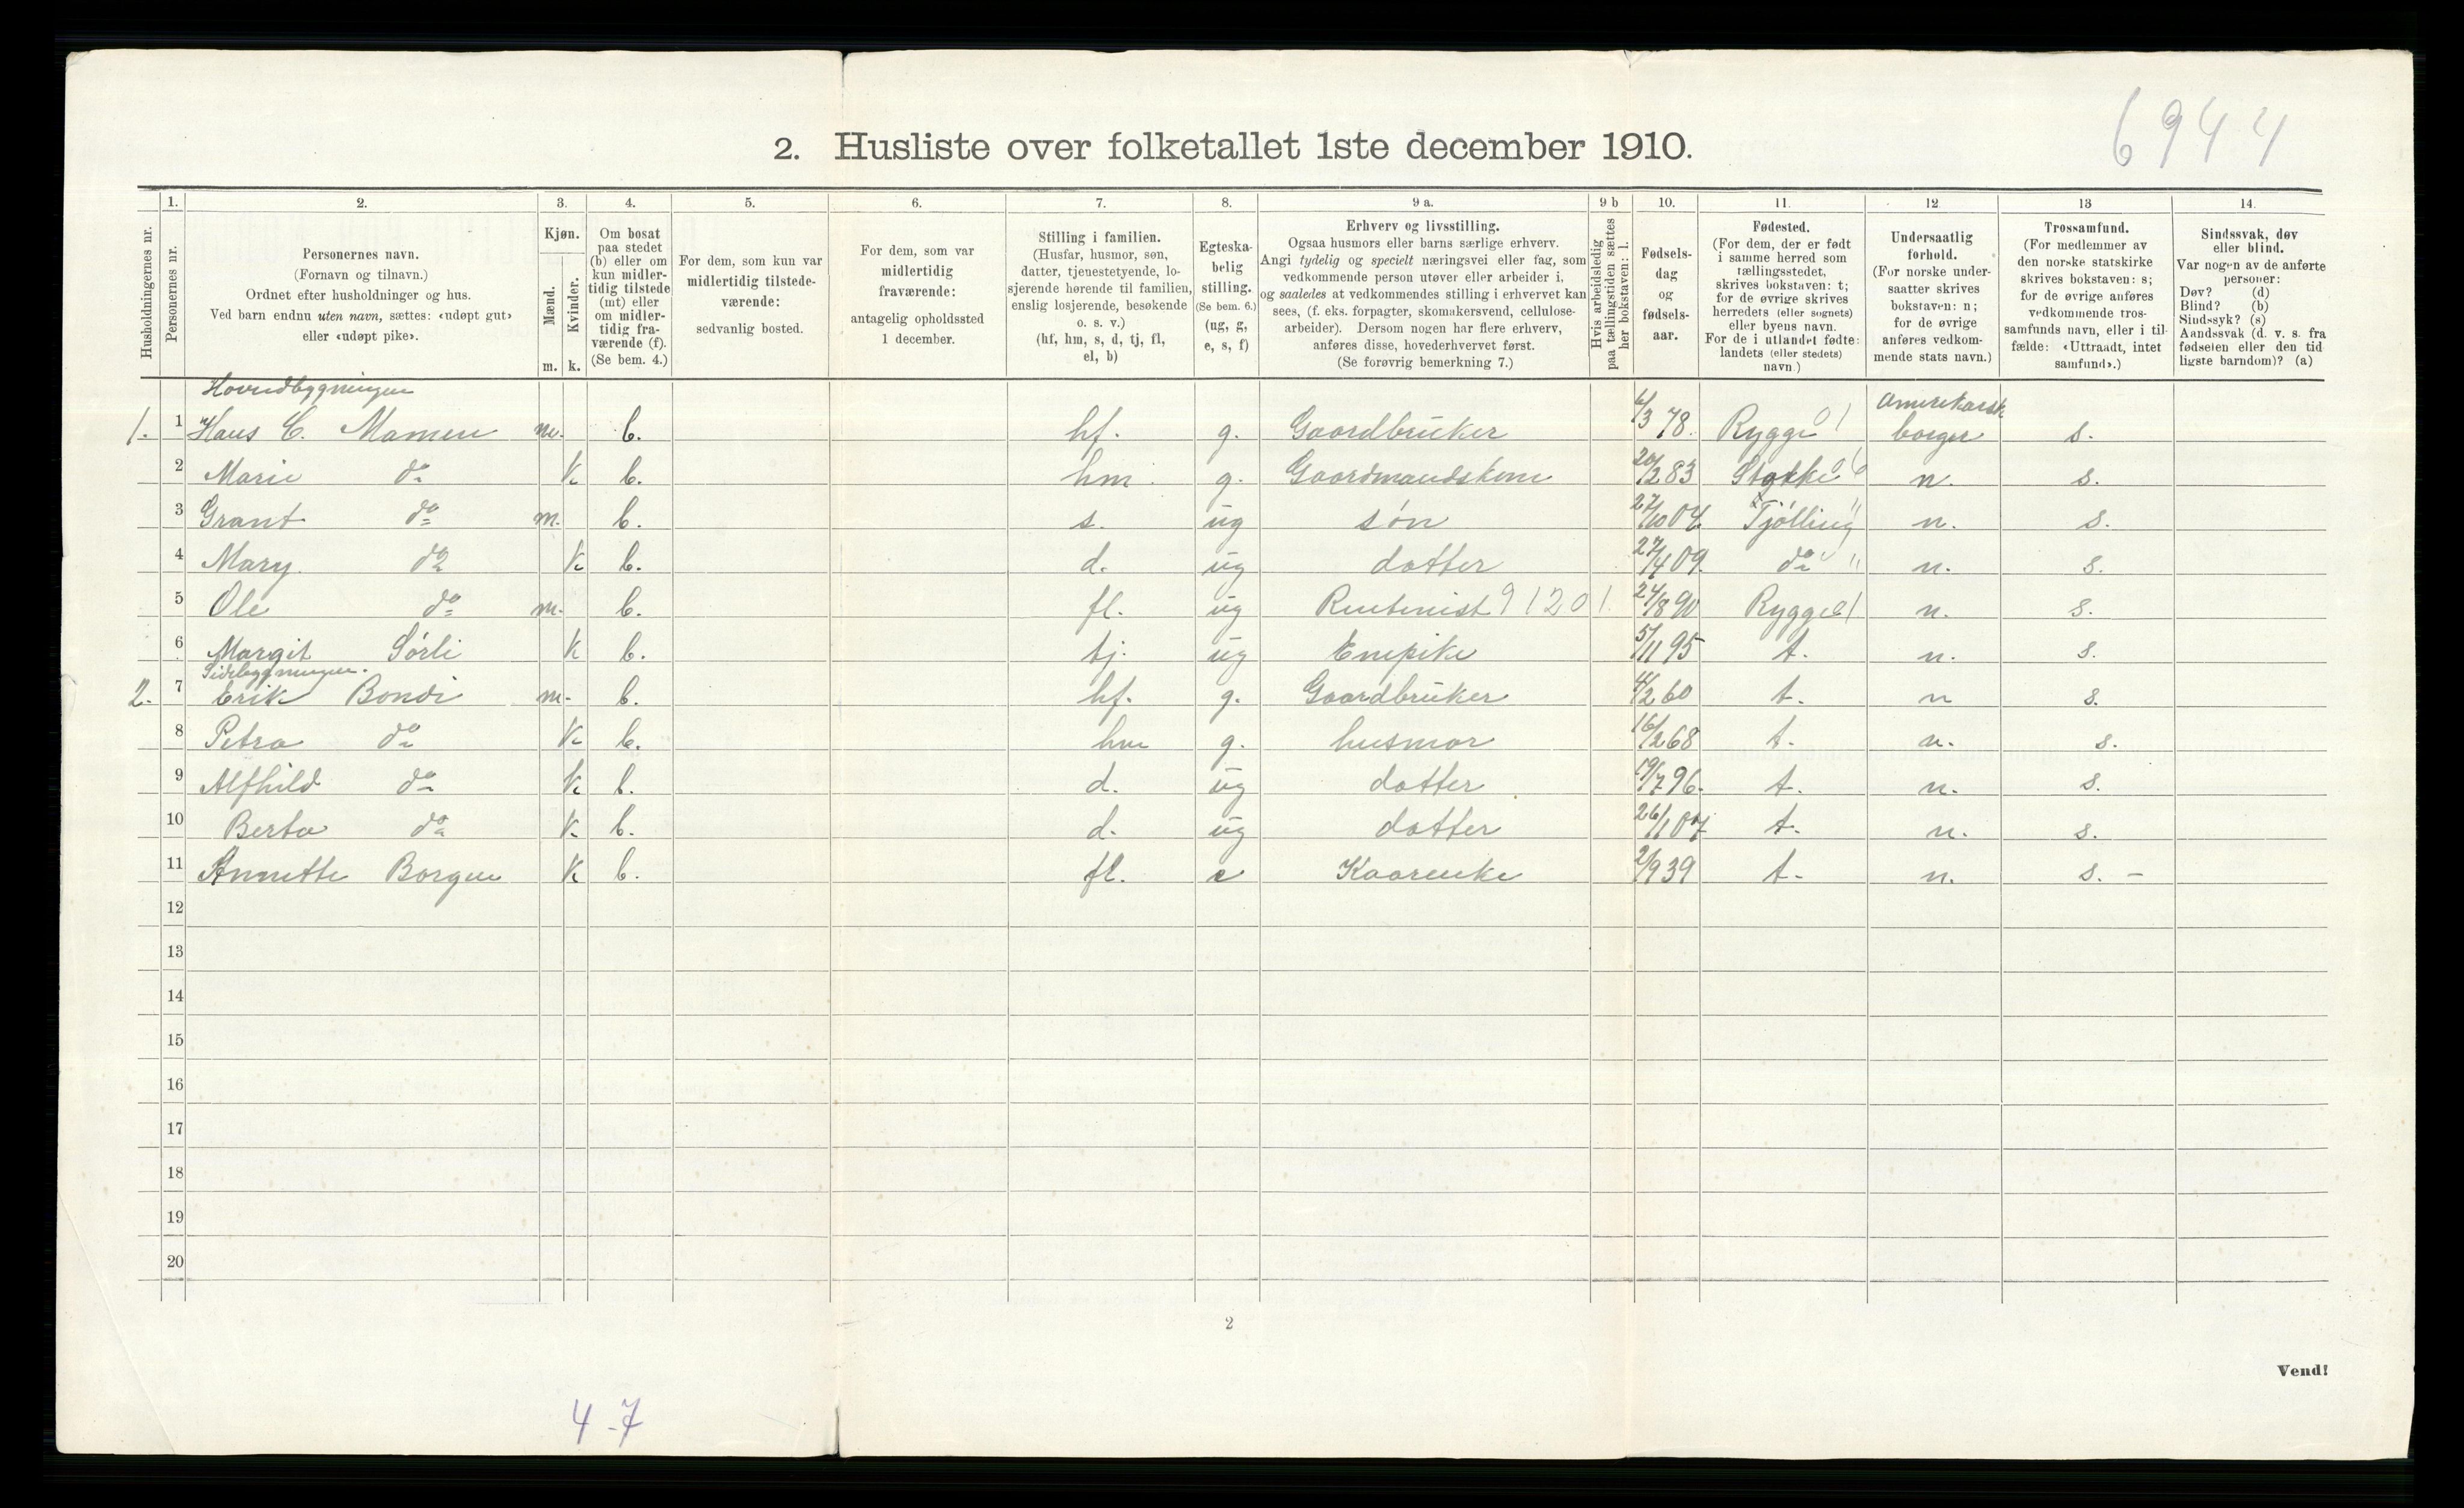 6944
2. Husliste over folketallet 1ste december 1910.
Husholdningernes nr.
1. Personernes nr.
2. Personernes navn. (Fornavn og tilnavn.) Ordnet efter husholdninger og hus. Ved barn endnu uten navn, sættes: «udøpt gut» eller «udøpt pike».
3. Kjøn. Mænd. m. Kvinder. k.
4. Om bosat paa stedet (b) eller om kun midlertidig tilstede (mt) eller om midlertidig fraværende (f). (Se bem. 4.)
5. For dem, som kun var midlertidig tilstedeværende: sedvanlig bosted.
6. For dem, som var midlertidig fraværende: antagelig opholdssted 1 december.
7. Stilling i familien. (Husfar, husmor, søn, datter, tjenestetyende, losjerende hørende til familien, enslig losjerende, besøkende o. s. v.) (hf, hm, s, d, tj, fl, el, b)
8. Egteskabelig stilling. (Se bem. 6.) (ug, g, e, s, f)
9 a. Erhverv og livsstilling. Ogsaa husmors eller barns særlige erhverv. Angi tydelig og specielt næringsvei eller fag, som vedkommende person utøver eller arbeider i, og saaledes at vedkommendes stilling i erhvervet kan sees, (f. eks. forpagter, skomakersvend, cellulose-arbeider). Dersom nogen har flere erhverv, anføres disse, hovederhvervet først. (Se forøvrig bemerkning 7.)
9 b Hvis arbeidsledig paa tællingstiden sættes her bokstaven: l.
10. Fødselsdag og fødselsaar.
11. Fødested. (For dem, der er født i samme herred som tællingsstedet, skrives bokstaven: t; for de øvrige skrives herredets (eller sognets) eller byens navn. For de i utlandet fødte: landets (eller stedets) navn.)
12. Undersaatlig forhold. (For norske undersaatter skrives bokstaven: n; for de øvrige anføres vedkommende stats navn.)
13 Trossamfund. (For medlemmer av den norske statskirke skrives bokstaven: s; for de øvrige anføres vedkommende trossamfunds navn, eller i tilfælde: «Uttraadt, intet samfund».)
14. Sindssvak, døv eller blind. Var nogen av de anførte personer: Døv? (d) Blind? (b) Sindssyk? (s) Aandssvak (d. v. s. fra fødselen eller den tidligste barndom)? (a)
Hovedbygningen
1. 1 Hans C. Mamen m. b. hf. g. Gaardbruker 6/3 78. Rygge 01 Amerikansk borger s.
2 Marie do k b. hm g. Gaardmandskone 20/2 83 Stokke 06 n. s.
3 Grant do m. b. s. ug søn 27/10 04. Tjølling " n. s.
4 Mary do k b. d. ug datter 27/4 09. do " n. s.
5 Ole do m. b. fl. ug Rentenist 9120 1. 24/8 90 Rygge 01 n. s.
6 Margit Sørli k b. tj. ug Enepike 5/11 95 t. n. s.
Sidebygningen.
2. 7 Erik Bondi m. b. hf. g. Gaardbruker 4/2 60 t. n s.
8 Petra do k b. hm g. husmor 16/2 68 t. n. s.
9 Alfhild do k b. d. ug datter 19/7 96. t. n. s.
10 Berta do k. b. d. ug datter 26/1 07 t. n. s.
11 Annette Borgen k b. fl. e Kaarenke 2/9 39 t. n. s. -
12
13
14
15
16
17
18
19
20
2
Vend!
4-7